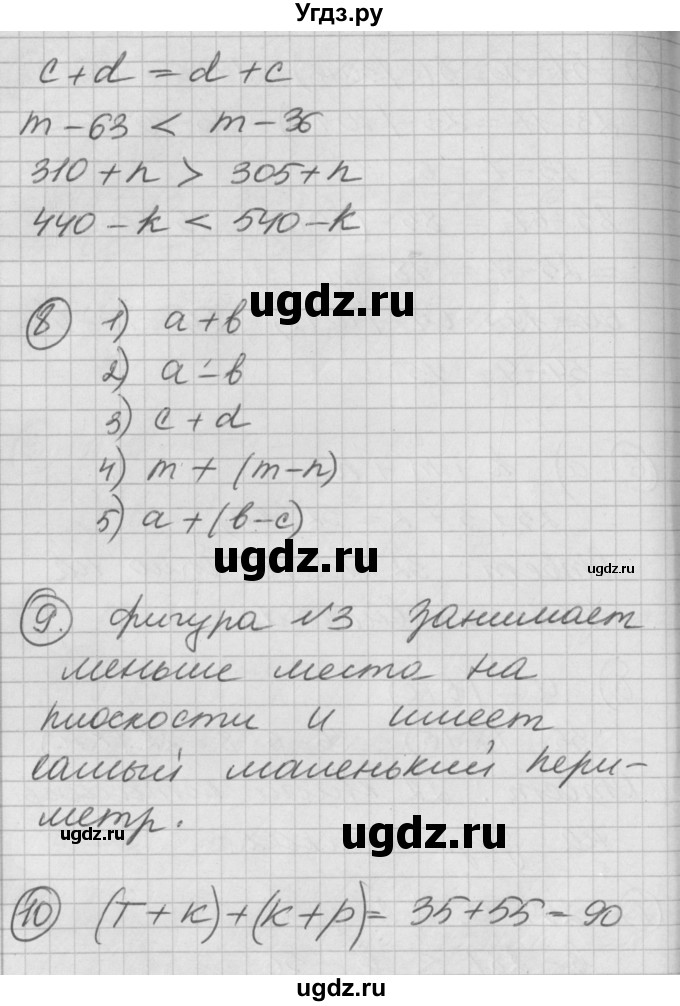 Угдз.ру
c + d = d + c
m - 63 < m - 36
310 + n > 305 + n
440 - k < 540 - k
ugdz.ru
8 1) a + b
2) a - b
3) c + d
4) m + (m - n)
5) a + (b - c)
ugdz.ru
ugdz.ru
9. фигура №3 занимает
меньше места на
плоскости и имеет
самый маленький пери-
метр.
ugdz.ru
ugdz.ru
10 (т + к) + (к + р) = 35 + 55 = 90
ugdz.ru